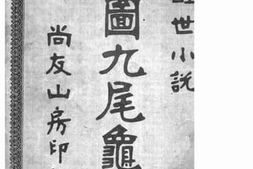 世小說
圖九尾龜
尚友山房印